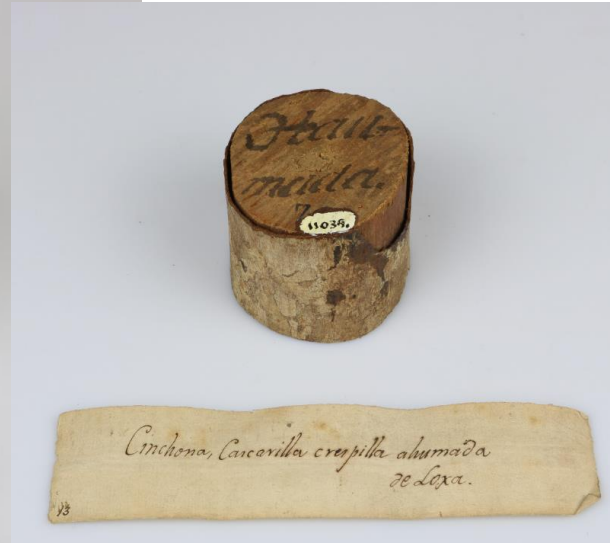 Ahau-
mada.
11039.
Cinchona, Cascarilla crespilla ahumada
de Loxa.
93